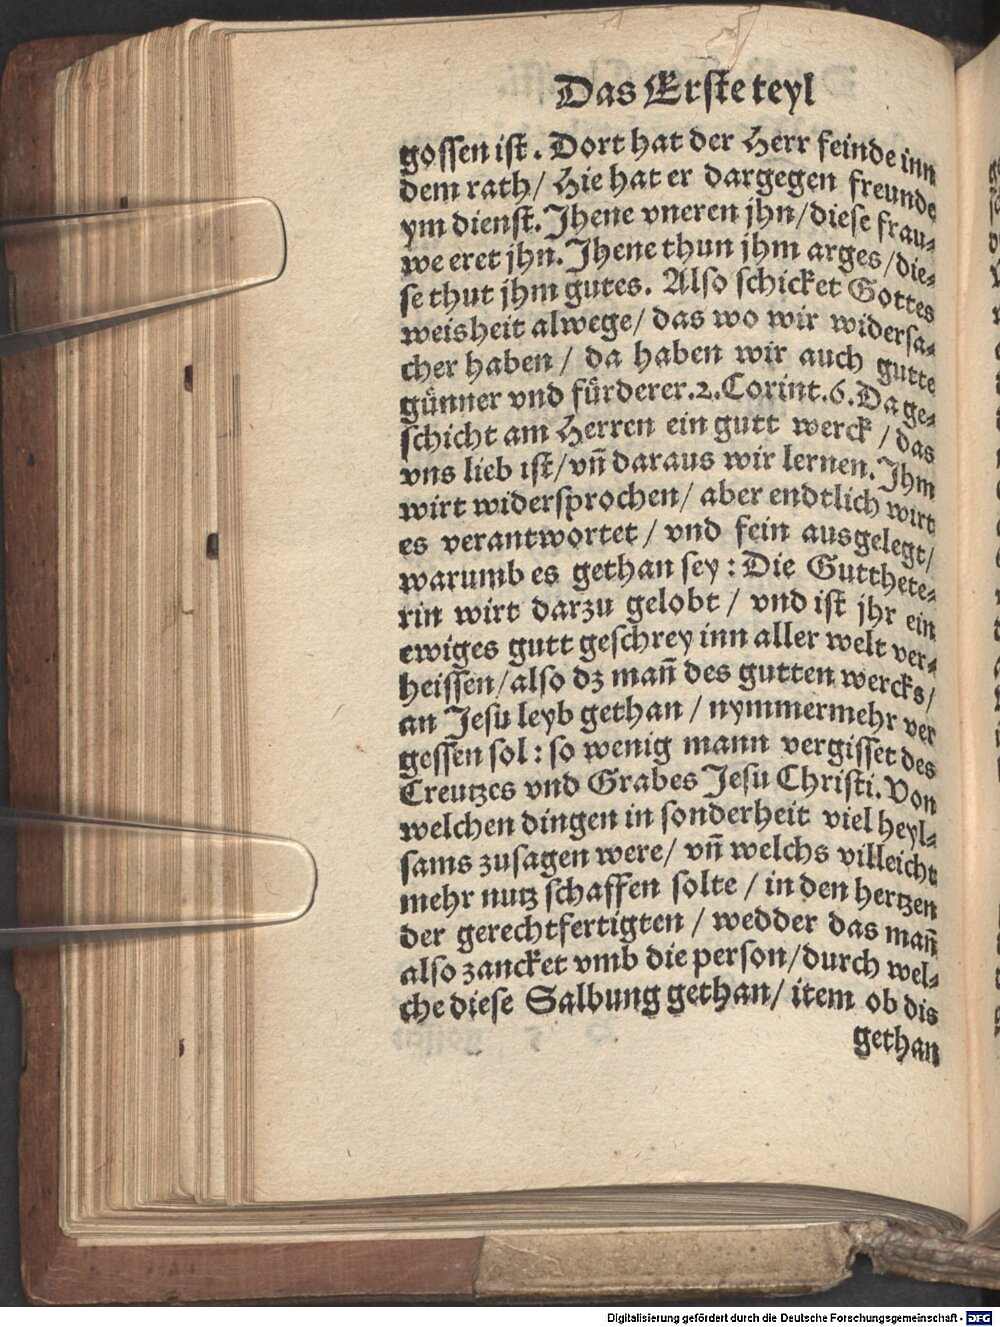 Das Erste teyl
gossen ist. Dort hat der Herr feinde inn
dem rath/ Hie hat er dargegen freunde
ym dienst. Jhene vneren jhn/diese frau⸗
we eret jhn. Jhene thun jhm arges/die⸗
se thut jhm gutes. Also schicket Gottes
weisheit alwege/ das wo wir widersa⸗
cher haben / da haben wir auch gutte
günner vnd fürderer. 2. Corint. 6. Da ge⸗
schicht am Herren ein gutt werck / das
vns lieb ist/ vñ daraus wir lernen. Jhm
wirt widersprochen/ aber endtlich wirt
es verantwortet / vnd fein ausgelegt/
warumb es gethan sey: Die Gutthete⸗
rin wirt darzu gelobt / vnd ist jhr ein
ewiges gutt geschrey inn aller welt ver⸗
heissen/also dz mañ des gutten wercks/
an Jesu leyb gethan / nymmermehr ver
gessen sol: so wenig mann vergisset des
Creutzes vnd Grabes Jesu Christi. Von
welchen dingen in sonderheit viel heyl⸗
sams zusagen were/ vñ welchs villeicht
mehr nutz schaffen solte / in den hertzen
der gerechtfertigten / wedder das mañ
also zancket vmb die person/durch wel⸗
che diese Salbung gethan/ item ob dis
gethan
Digitalisierung gefördert durch die Deutsche Forschungsgemeinschaft - DFG